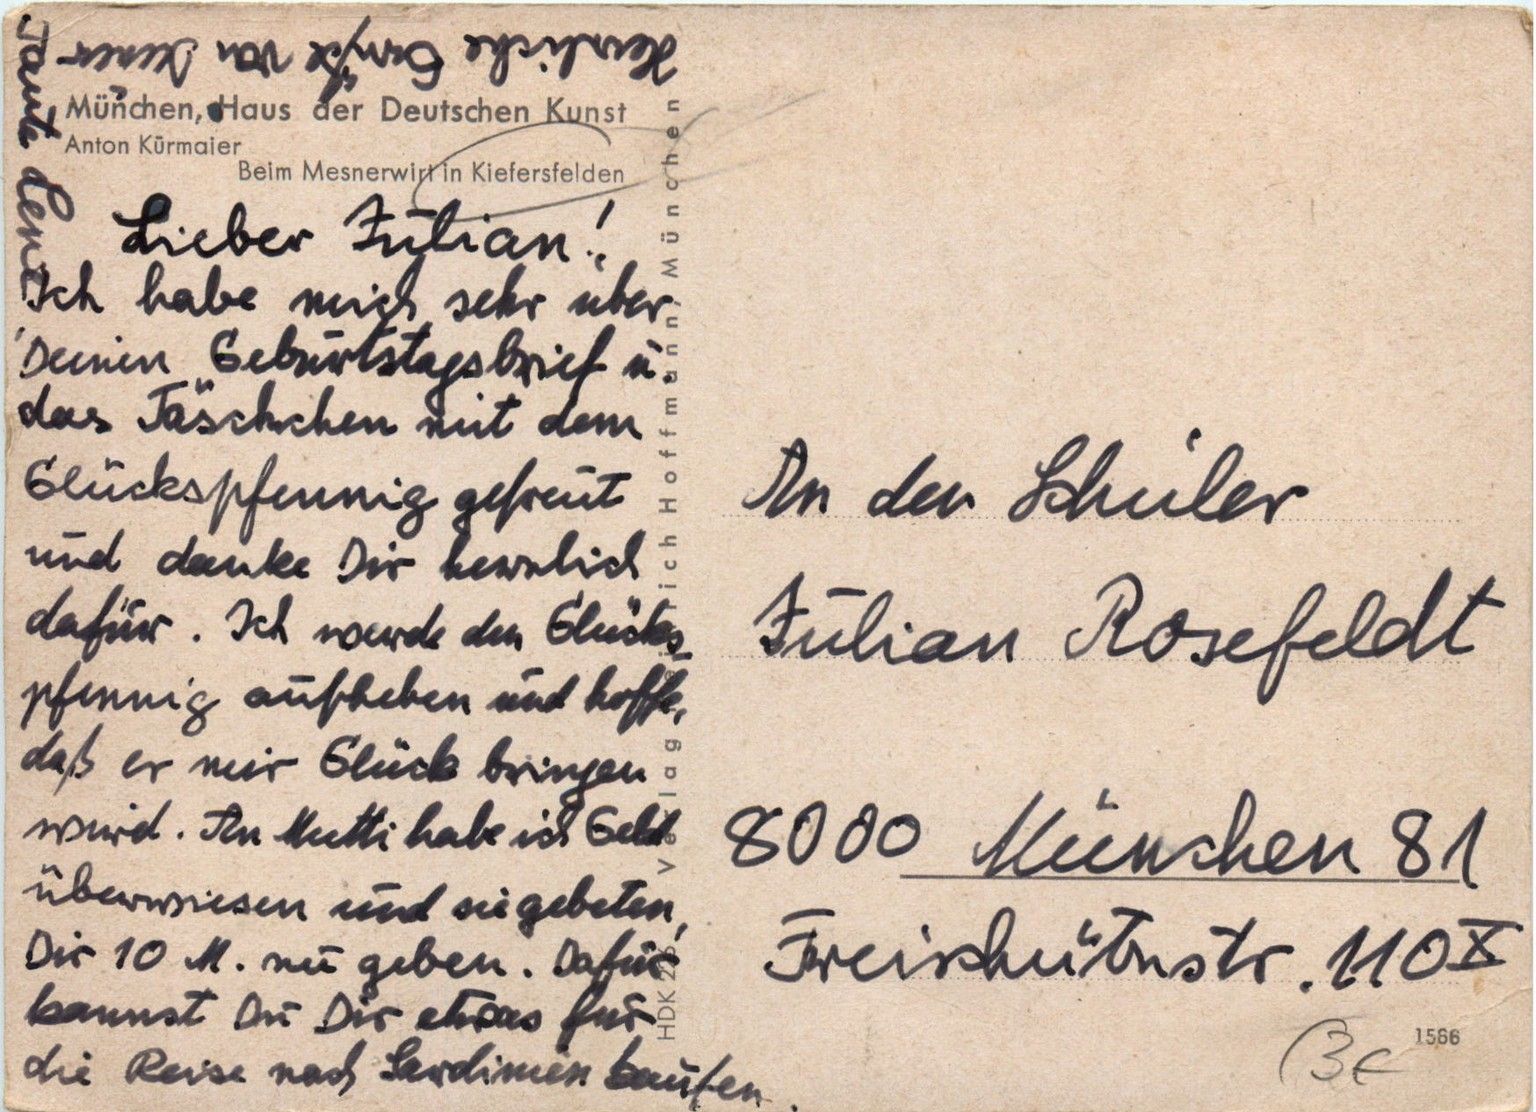 München, Haus der Deutschen Kunst
Anton Kürmaier
Beim Mesnerwirt in Kiefersfelden
Lieber Julian!
Ich habe mich sehr über
Deinen Geburtstagsbrief u.
das Täschchen mit dem
Glückspfennig gefreut
und danke Dir herzlich
dafür. Ich werde den Glücks-
pfennig aufheben und hoffe,
daß er mir Glück bringen
wird. An Mutti habe ich Geld
überwiesen und sie gebeten,
Dir 10 M. zu geben. Dafür
kannst Du Dir etwas für
die Reise nach Sardinien kaufen.
Herzliche Grüße von Deiner
Tante Leni
HDK 225 Verlag Heinrich Hoffmann, München
An den Schüler
Julian Rosefeldt
8000 München 81
Freischützstr. 110 X
3€
1566